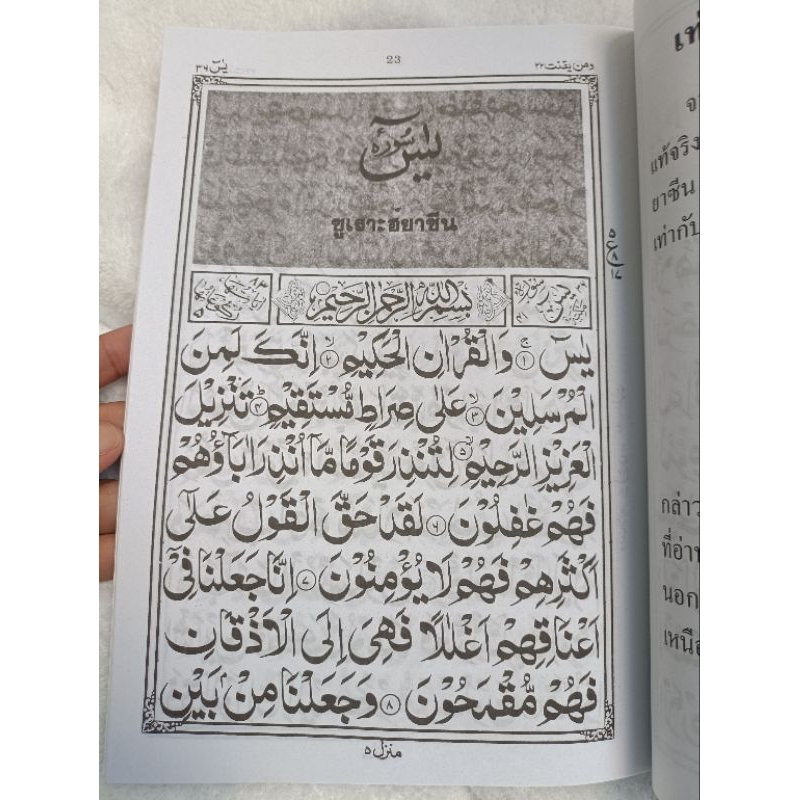 23
ومن یقنت ۲۲
یٰس ۳۶
سُوْرَةُ يٰسٓ
ซูเราะฮ์ยาซีน
بِسْمِ اللّٰهِ الرَّحْمٰنِ الرَّحِيْمِ
يٰسٓ ۚ﴿۱﴾ وَالْقُرْاٰنِ الْحَكِيْمِ ۙ﴿۲﴾ اِنَّكَ لَمِنَ
الْمُرْسَلِيْنَ ۙ﴿۳﴾ عَلٰى صِرَاطٍ مُّسْتَقِيْمٍ ؕ﴿۴﴾ تَنْزِيْلَ
الْعَزِيْزِ الرَّحِيْمِ ۙ﴿۵﴾ لِتُنْذِرَ قَوْمًا مَّاۤ اُنْذِرَ اٰبَآؤُهُمْ
فَهُمْ غٰفِلُوْنَ ﴿۶﴾ لَقَدْ حَقَّ الْقَوْلُ عَلٰۤى
اَكْثَرِهِمْ فَهُمْ لَا يُؤْمِنُوْنَ ﴿۷﴾ اِنَّا جَعَلْنَا فِىْۤ
اَعْنَاقِهِمْ اَغْلٰلًا فَهِىَ اِلَى الْاَذْقَانِ
فَهُمْ مُّقْمَحُوْنَ ﴿۸﴾ وَجَعَلْنَا مِنْۢ بَيْنِ
منزل ۵
แท้จริง
ยาซีน
เท่ากับ
กล่าว
ที่อ่าน
นอก
เหนือ